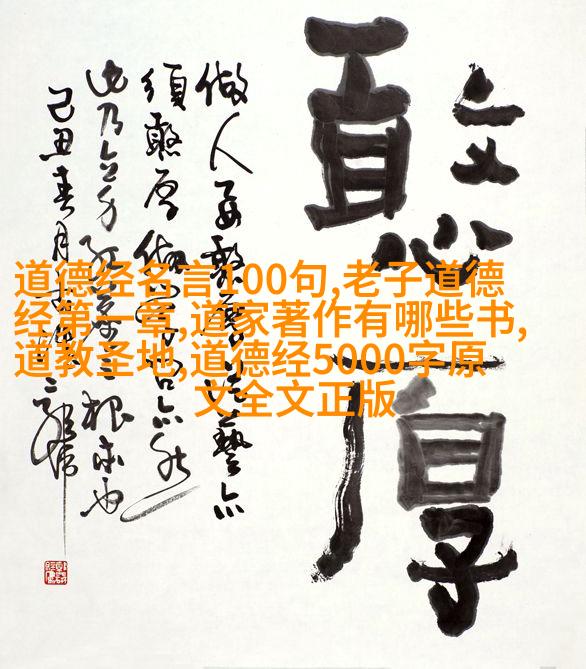 憨厚
做人要憨厚藝亦
須憨厚做亦然
此乃之根本也
己丑春月
道德经名言100句,老子道德
经第一章,道家著作有哪些书,
道教圣地,道德经5000字原
文全文正版